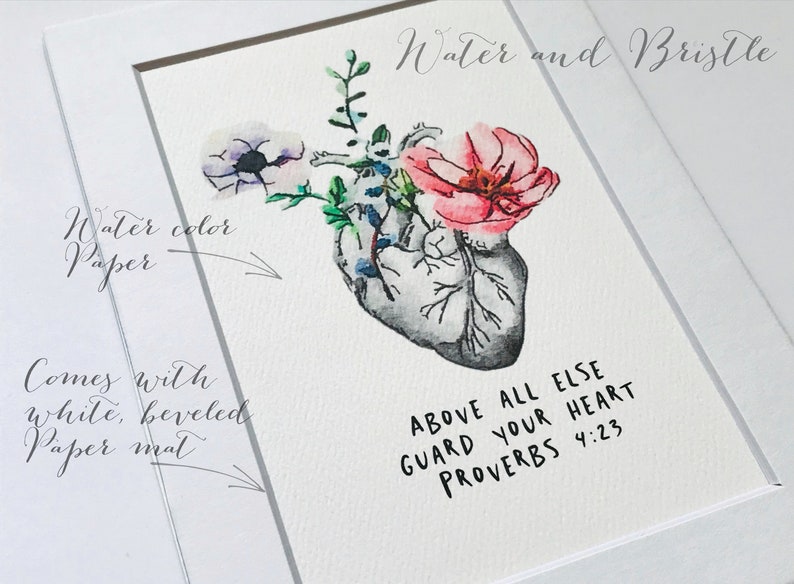 Water and Bristle
Water color
Paper
Comes with
white, beveled
Paper mat
ABOVE ALL ELSE
GUARD YOUR HEART
PROVERBS 4:23